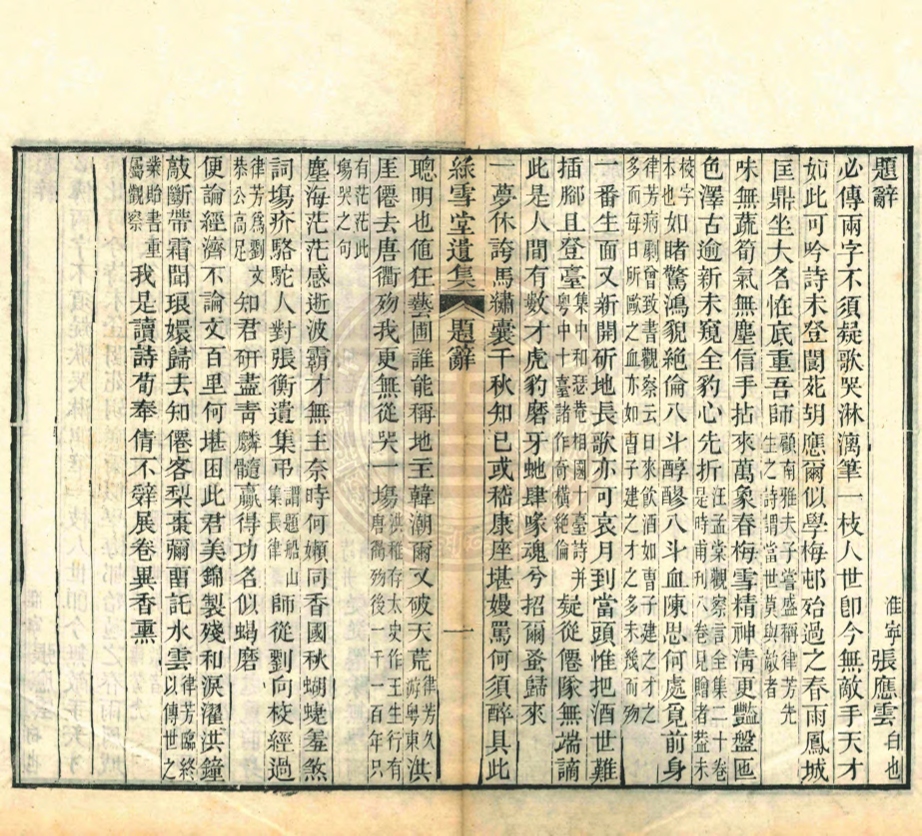 題辭
淮寧張應雲白也
必傳兩字不須疑歌哭淋漓筆一枝人世卽今無敵手天才
如此可吟詩未登閬苑胡應爾似學梅邨殆過之春雨鳳城
匡鼎坐大名恠底重吾師顧南雅夫子嘗盛稱律芳先生之詩謂當世莫與敵者
味無蔬筍氣無塵信手拈來萬象春梅雪精神清更豔盤匜
色澤古逾新未窺全豹心先折汪孟棠觀察言全集二十卷是時甫刊八卷見贈者蓋未
校字本也如睹驚鴻貌絕倫八斗醇醪八斗血陳思何處覓前身
律芳病劇曾致書觀察云日來飲酒如曹子建之才之多而每日所歐之血亦如曹子建之才之多未幾而歿
一番生面又新開斫地長歌亦可哀月到當頭惟把酒世難
插腳且登臺集中和瑟菴相國十臺詩并粵中十臺諸作奇橫絕倫疑從僊隊無端謫
此是人間有數才虎豹磨牙虵肆喙魂兮招爾蚤歸來
一夢休誇馬繡囊千秋知已或嵇康座堪嫚罵何須醉具此
綠雪堂遺集 題辭 一
聰明也傹狂藝圃誰能稱地主韓潮爾又破天荒律芳久游粵東洪
厓僊去唐衢歿我更無從哭一塲洪稚存太史作王生行有唐衢歿後一千一百年只
有茫茫此塲哭之句
塵海茫茫感逝波霸才無主奈時何嬾同香國秋蝴蜨羞煞
詞塲疥駱駝人對張衡遺集弔謂題船山集長律師從劉向校經過
律芳爲劉文恭公高足知君研盡靑麟髓贏得功名似蝎磨
便論經濟不論文百里何堪困此君美錦製殘和淚濯洪鐘
敲斷帶霜聞琅嬛歸去知僊客梨棗彌畱託水雲律芳臨終以傳世之
業貽書重屬觀察我是讀詩荀奉倩不辤展卷異香熏